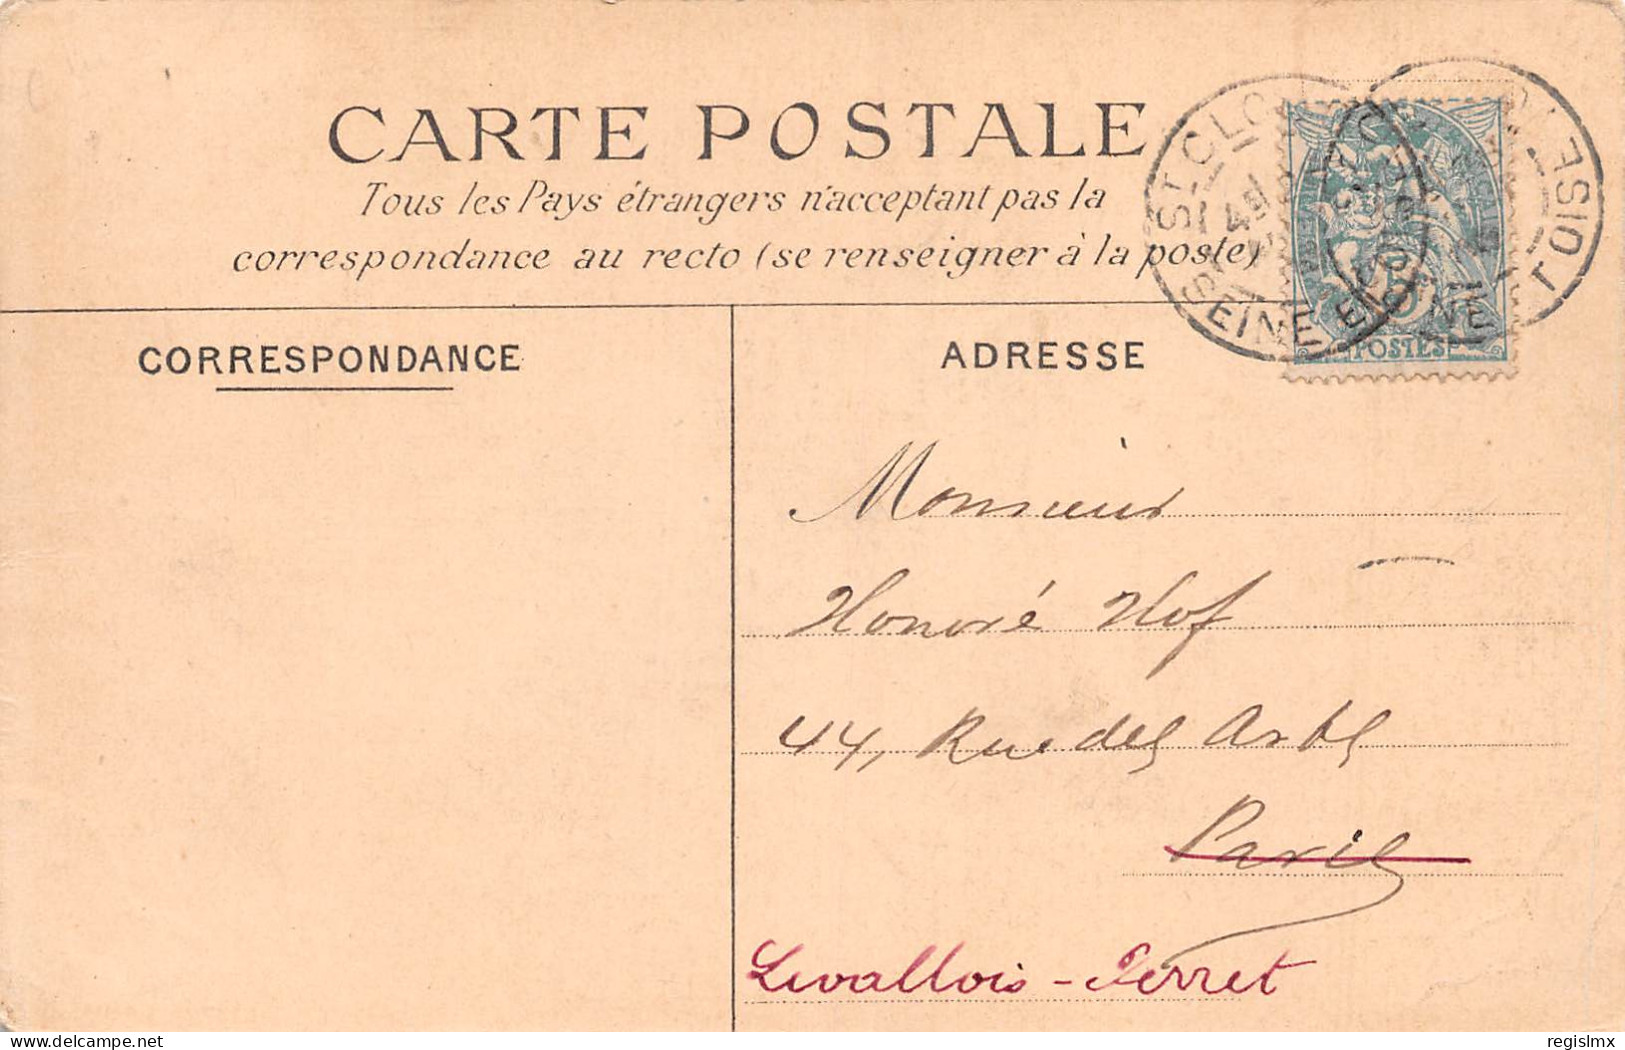 CARTE POSTALE
Tous les Pays étrangers n'acceptant pas la
correspondance au recto (se renseigner à la poste)
CORRESPONDANCE
ADRESSE
ST CLO
SEINE
POSTES
Monsieur
Honoré Hof
44, Rue des Arts
Paris
Levallois-Perret
regislmx